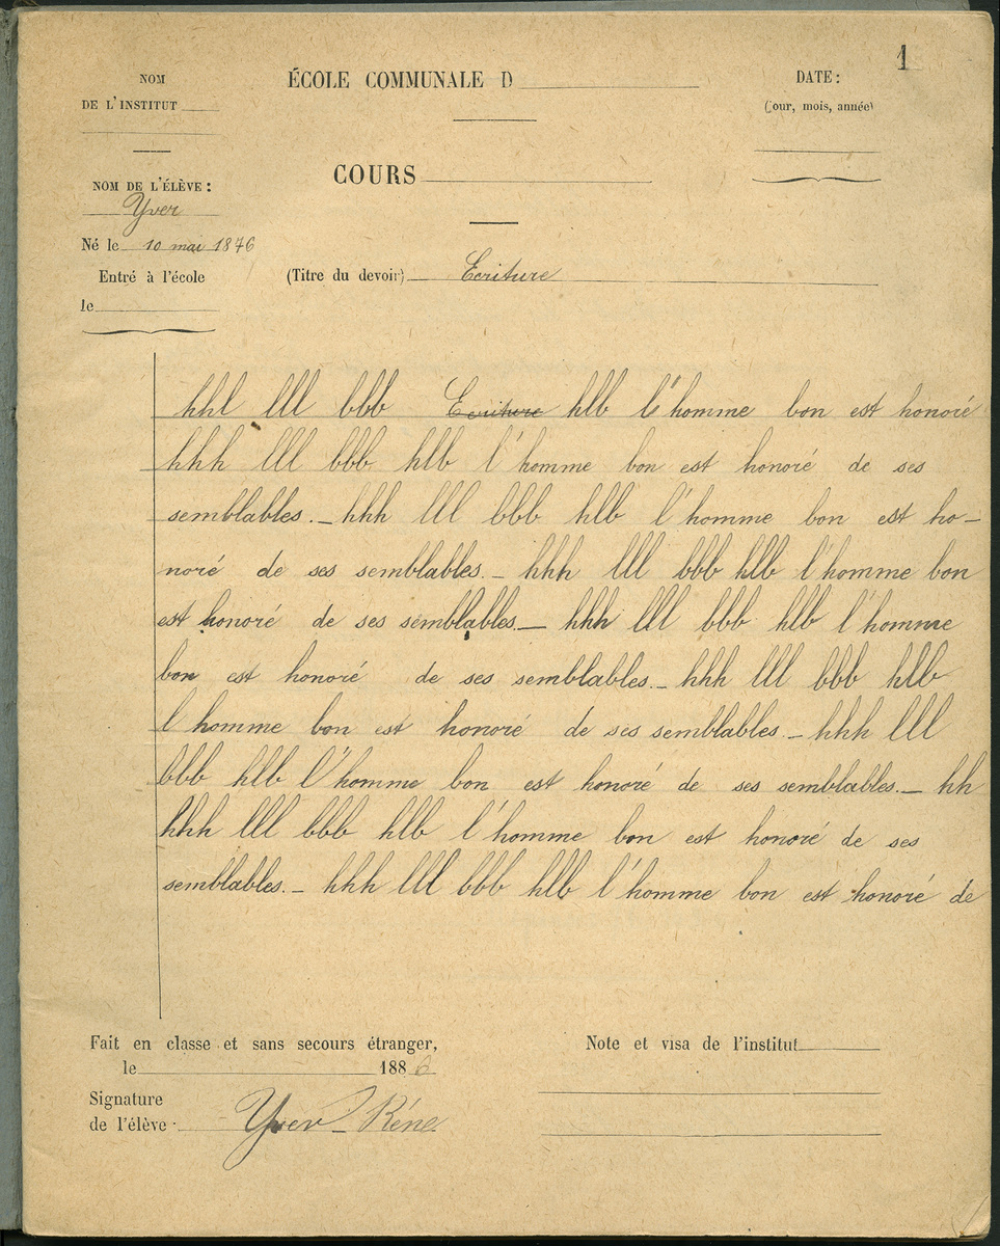 1
NOM
DE L'INSTITUT
ÉCOLE COMMUNALE D
DATE:
(Jour, mois, année)
COURS
NOM DE L'ÉLÈVE:
Yver
Né le 10 mai 1876
Entré à l'école
le
(Titre du devoir) Ecriture
hhl lll bbb Ecriture hlb l'homme bon est honoré
hhh lll bbb hlb l'homme bon est honoré de ses
semblables. _ hhh lll bbb hlb l'homme bon est ho-
noré de ses semblables. _ hhh lll bbb hlb l'homme bon
est honoré de ses semblables. _ hhh lll bbb hlb l'homme
bon est honoré de ses semblables. _ hhh lll bbb hlb
l'homme bon est honoré de ses semblables. _ hhh lll
bbb hlb l'homme bon est honoré de ses semblables. _ hh
hhh lll bbb hlb l'homme bon est honoré de ses
semblables. _ hhh lll bbb hlb l'homme bon est honoré de
Fait en classe et sans secours étranger,
le 1886
Signature
de l'élève Yver Réne
Note et visa de l'institut